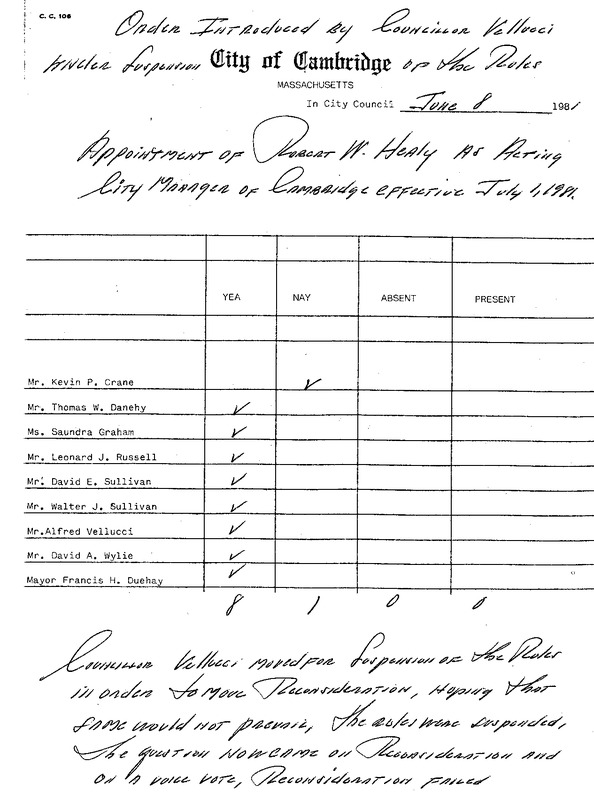 C. C. 106
Order Introduced by Councillor Vellucci
under Suspension City of Cambridge of the Rules
MASSACHUSETTS
In City Council June 8 1981
Appointment of Robert W. Healy as Acting
City Manager of Cambridge effective July 1, 1981.
YEA NAY ABSENT PRESENT
Mr. Kevin P. Crane ✓
Mr. Thomas W. Danehy ✓
Ms. Saundra Graham ✓
Mr. Leonard J. Russell ✓
Mr. David E. Sullivan ✓
Mr. Walter J. Sullivan ✓
Mr.Alfred Vellucci ✓
Mr. David A. Wylie ✓
Mayor Francis H. Duehay ✓
8 1 0 0
Councillor Vellucci moved for Suspension of the Rules
in order to move Reconsideration, hoping that
same would not prevail, The rules were suspended,
The question now came on Reconsideration and
on a voice vote, Reconsideration failed